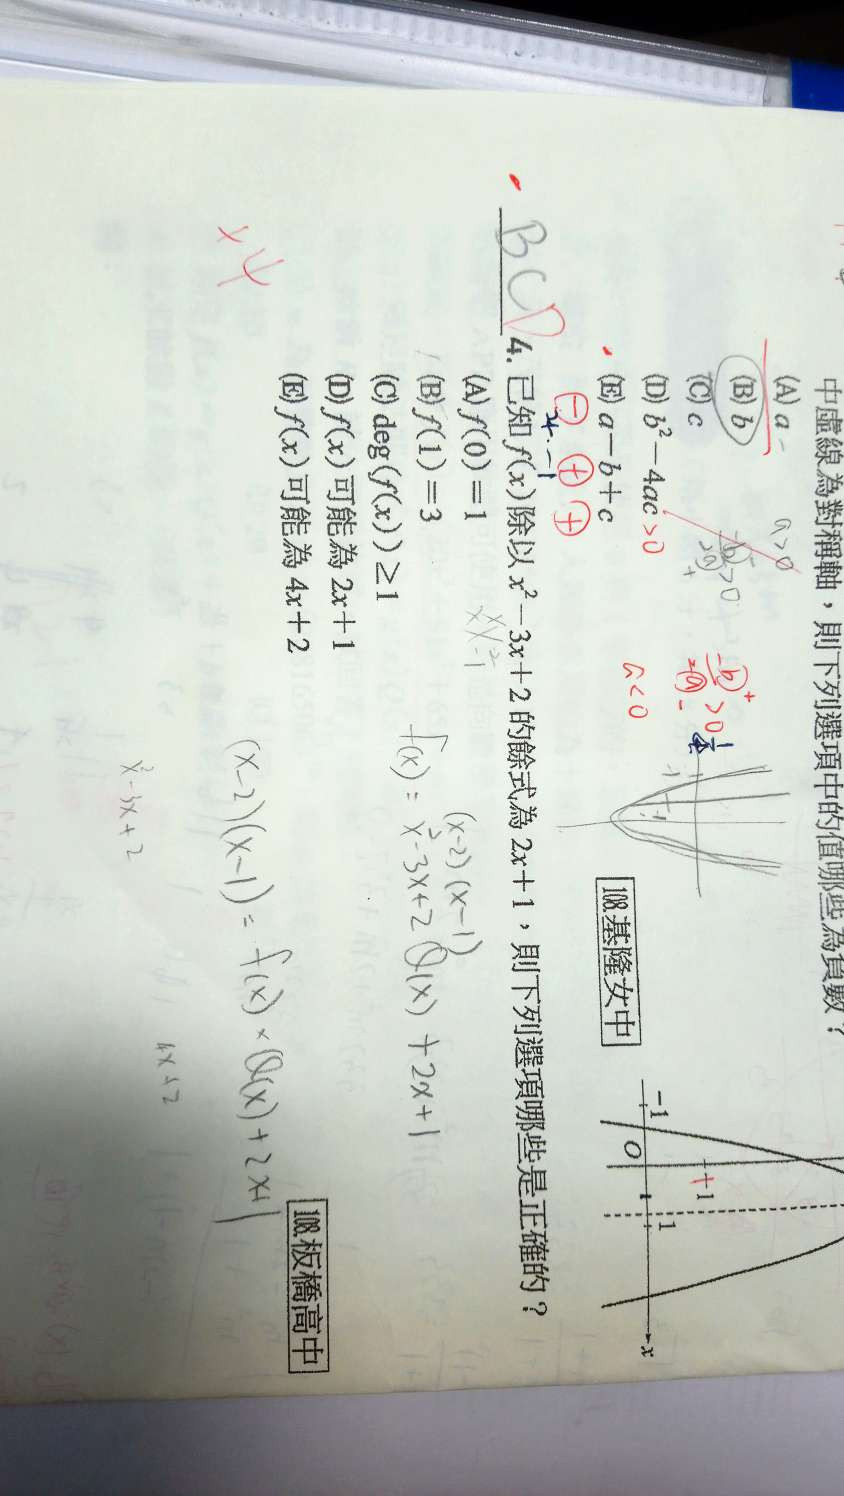 中虛線為對稱軸，則下列選項中的值哪些為負數？
(A) a
(B) b
(C) c
(D) b²－4ac >0
(E) a－b＋c
108.基隆女中
－1
O
1
1
x
a>0
a<0
BCD
4. 已知 f(x) 除以 x²－3x＋2 的餘式為 2x＋1，則下列選項哪些是正確的？
(A) f(0)＝1
(B) f(1)＝3
(C) deg(f(x))≥1
(D) f(x) 可能為 2x＋1
(E) f(x) 可能為 4x＋2
108.板橋高中
(x-2)(x-1)
f(x) = x²-3x+2 Q(x) + 2x+1
(x-2)(x-1) = f(x)×Q(x)+2x+1
x²-3x+2
4x+2